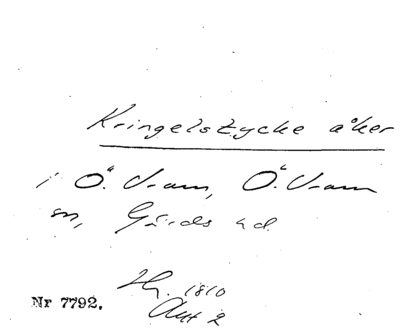 Kringelstycke åker
i Ö. Vram, Ö. Vram
sn, Gärds hd.
Hy. 1810
Akt 2
Nr 7792.